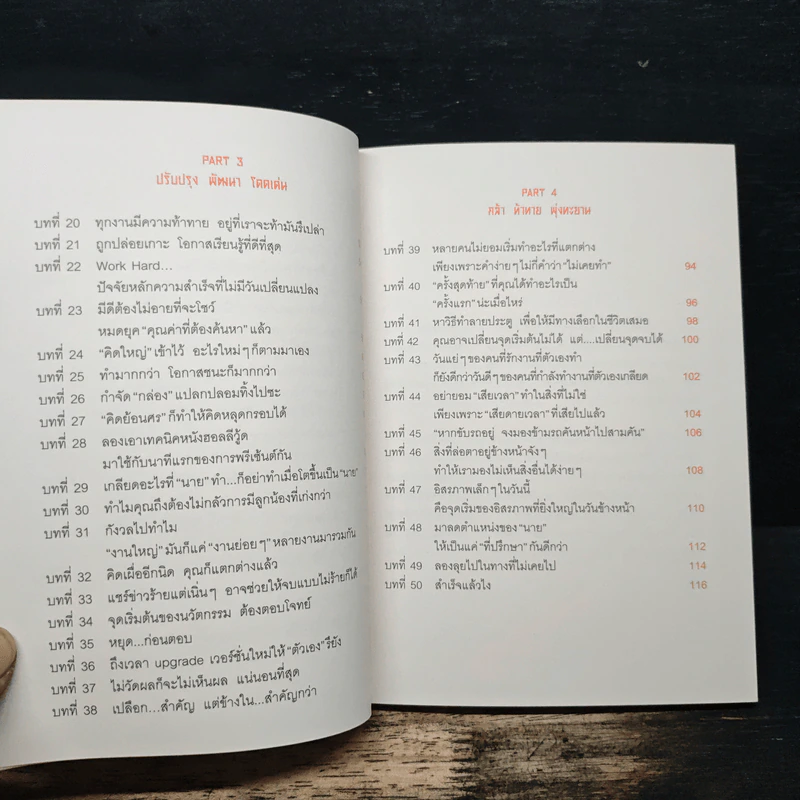 PART 3
ปรับปรุง พัฒนา โดดเด่น
บทที่ 20 ทุกงานมีความท้าทาย อยู่ที่เราจะท้ามันรึเปล่า
บทที่ 21 ถูกปล่อยเกาะ โอกาสเรียนรู้ที่ดีที่สุด
บทที่ 22 Work Hard...
ปัจจัยหลักความสำเร็จที่ไม่มีวันเปลี่ยนแปลง
บทที่ 23 มีดีต้องไม่อายที่จะโชว์
หมดยุค "คุณค่าที่ต้องค้นหา" แล้ว
บทที่ 24 "คิดใหญ่" เข้าไว้ อะไรใหม่ๆ ก็ตามมาเอง
บทที่ 25 ทำมากกว่า โอกาสชนะก็มากกว่า
บทที่ 26 กำจัด "กล่อง" แปลกปลอมทิ้งไปซะ
บทที่ 27 "คิดย้อนศร" ก็ทำให้คิดหลุดกรอบได้
บทที่ 28 ลองเอาเทคนิคหนังฮอลลีวู้ด
มาใช้กับนาทีแรกของการพรีเซ้นต์กัน
บทที่ 29 เกลียดอะไรที่ "นาย" ทำ...ก็อย่าทำเมื่อโตขึ้นเป็น "นาย"
บทที่ 30 ทำไมคุณถึงต้องไม่กลัวการมีลูกน้องที่เก่งกว่า
บทที่ 31 กังวลไปทำไม
"งานใหญ่" มันก็แค่ "งานย่อยๆ" หลายงานมารวมกัน
บทที่ 32 คิดเผื่ออีกนิด คุณก็แตกต่างแล้ว
บทที่ 33 แชร์ข่าวร้ายแต่เนิ่นๆ อาจช่วยให้จบแบบไม่ร้ายก็ได้
บทที่ 34 จุดเริ่มต้นของนวัตกรรม ต้องตอบโจทย์
บทที่ 35 หยุด...ก่อนตอบ
บทที่ 36 ถึงเวลา upgrade เวอร์ชั่นใหม่ให้ "ตัวเอง" รึยัง
บทที่ 37 ไม่วัดผลก็จะไม่เห็นผล แน่นอนที่สุด
บทที่ 38 เปลือก...สำคัญ แต่ข้างใน...สำคัญกว่า
PART 4
กล้า ท้าทาย พุ่งทะยาน
บทที่ 39 หลายคนไม่ยอมเริ่มทำอะไรที่แตกต่าง
เพียงเพราะคำง่ายๆ ไม่กี่คำว่า "ไม่เคยทำ" 94
บทที่ 40 "ครั้งสุดท้าย" ที่คุณได้ทำอะไรเป็น
"ครั้งแรก" น่ะเมื่อไหร่ 96
บทที่ 41 หาวิธีทำลายประตู เพื่อให้มีทางเลือกในชีวิตเสมอ 98
บทที่ 42 คุณอาจเปลี่ยนจุดเริ่มต้นไม่ได้ แต่....เปลี่ยนจุดจบได้ 100
บทที่ 43 วันแย่ๆ ของคนที่รักงานที่ตัวเองทำ
ก็ยังดีกว่าวันดีๆ ของคนที่กำลังทำงานที่ตัวเองเกลียด 102
บทที่ 44 อย่ายอม "เสียเวลา" ทำในสิ่งที่ไม่ใช่
เพียงเพราะ "เสียดายเวลา" ที่เสียไปแล้ว 104
บทที่ 45 "หากขับรถอยู่ จงมองข้ามรถคันหน้าไปสามคัน" 106
บทที่ 46 สิ่งที่ล่อตาอยู่ข้างหน้าจังๆ
ทำให้เรามองไม่เห็นสิ่งอื่นได้ง่ายๆ 108
บทที่ 47 อิสรภาพเล็กๆ ในวันนี้
คือจุดเริ่มของอิสรภาพที่ยิ่งใหญ่ในวันข้างหน้า 110
บทที่ 48 มาลดตำแหน่งของ "นาย"
ให้เป็นแค่ "ที่ปรึกษา" กันดีกว่า 112
บทที่ 49 ลองลุยไปในทางที่ไม่เคยไป 114
บทที่ 50 สำเร็จแล้วไง 116